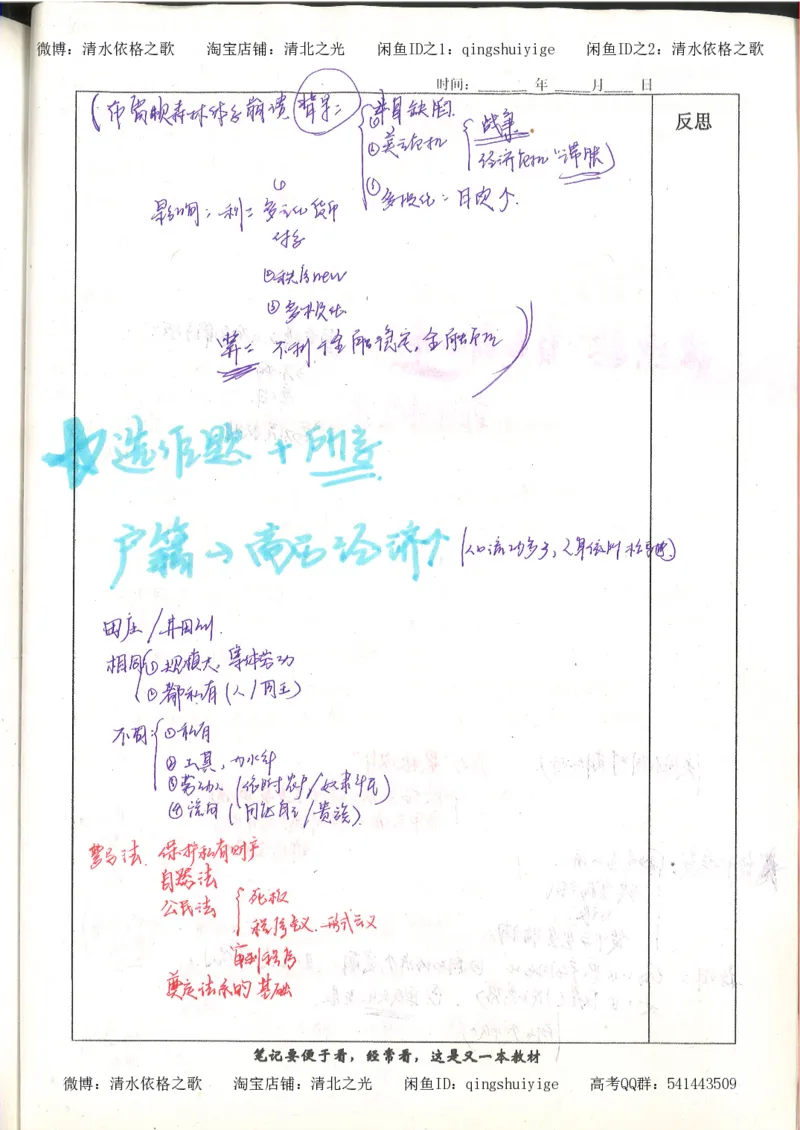 微博：清水依格之歌 淘宝店铺：清北之光 闲鱼ID之1：qingshuiyige 闲鱼ID之2：清水依格之歌
时间：______年______月____日
反思
(布雷顿森林体系崩溃 背景：
①自身缺陷.
②美元危机 战争.
经济危机“滞胀”)
③多极化：日欧↑.
影响：利：①多元化货币
体系
②秩序new
③多极化
弊：不利于金融稳定，金融危机)
选作题＋所序
户籍→商品经济个(人口流动多了,人身依附松弛)
田庄/井田制.
相同①规模大、集体劳动
②都私有(人/国王)
不同：①私有
②工具，力水斗
③劳动人(依附农户/奴隶平民)
④(国征自主/贵族).
罗马法、保护私有财产
自然法
公民法 死板
程序主义、形式主义
审判程序
奠定法系的基础
笔记要便于看，经常看，这是又一本教材
微博：清水依格之歌 淘宝店铺：清北之光 闲鱼ID：qingshuiyige 高考QQ群：541443509